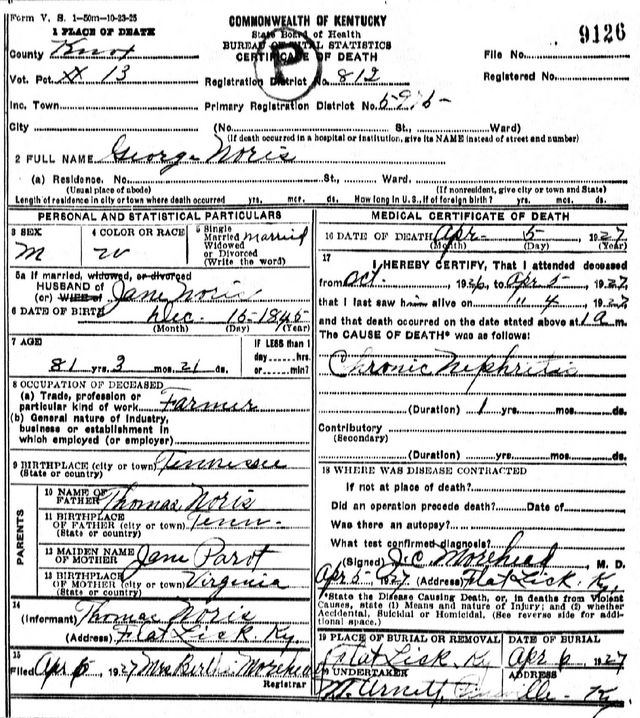 Form V. S. 1-50m-10-23-25
COMMONWEALTH OF KENTUCKY
State Board of Health
BUREAU OF VITAL STATISTICS
CERTIFICATE OF DEATH
P
9126
1 PLACE OF DEATH
County Knox
File No.
Vot. Pct. 13
Registration District No. 812
Registered No.
Inc. Town
Primary Registration District No.
City (No. St., Ward)
(If death occurred in a hospital or institution, give its NAME instead of street and number)
2 FULL NAME George Noris
(a) Residence. No. St., Ward.
(Usual place of abode) (If nonresident, give city or town and State)
Length of residence in city or town where death occurred yrs. mos. ds. How long in U.S., if of foreign birth? yrs. mos. ds.
PERSONAL AND STATISTICAL PARTICULARS
3 SEX M
4 COLOR OR RACE W
5 Single Married Widowed or Divorced (Write the word) Married
5a If married, widowed, or divorced
HUSBAND of
(or) WIFE of Jane Noris
6 DATE OF BIRTH Dec. 15-1845
(Month) (Day) (Year)
7 AGE
81 yrs. 3 mos. 21 ds.
IF LESS than 1
day hrs.
or min?
8 OCCUPATION OF DECEASED
(a) Trade, profession or
particular kind of work Farmer
(b) General nature of Industry,
business or establishment in
which employed (or employer)
9 BIRTHPLACE (city or town) Tennessee
(State or country)
PARENTS
10 NAME OF
FATHER Thomas Noris
11 BIRTHPLACE
OF FATHER (city or town) Tenn-
(State or country)
12 MAIDEN NAME
OF MOTHER Jane Parot
13 BIRTHPLACE
OF MOTHER (city or town) Virginia
(State or country)
14
(Informant) Thomas Noris
(Address) Flat Lick Ky.
15
Filed Apr 6 1927 Mrs Morehead
Registrar
MEDICAL CERTIFICATE OF DEATH
16 DATE OF DEATH Apr- 5, 1927
(Month) (Day) (Year)
17
I HEREBY CERTIFY, That I attended deceased
from Oct. , 1926, to Apr 5, 1927,
that I last saw him alive on " 4, 1927
and that death occurred on the date stated above at 1 a m.
The CAUSE OF DEATH* was as follows:
Chronic Nephritis
(Duration) 1 yrs. mos. ds.
Contributory
(Secondary)
(Duration) yrs. mos. ds.
18 WHERE WAS DISEASE CONTRACTED
If not at place of death?
Did an operation precede death? Date of
Was there an autopsy?
What test confirmed diagnosis?
(Signed) J.C. Morehead, M. D.
Apr 5, 1927. (Address) Flat Lick. Ky.
*State the Disease Causing Death, or, in deaths from Violent
Causes, state (1) Means and nature of Injury; and (2) whether
Accidental, Suicidal or Homicidal. (See reverse side for addi-
tional space.)
19 PLACE OF BURIAL OR REMOVAL
Flat Lick. Ky
DATE OF BURIAL
Apr 6 1927
20 UNDERTAKER
ADDRESS
Ky